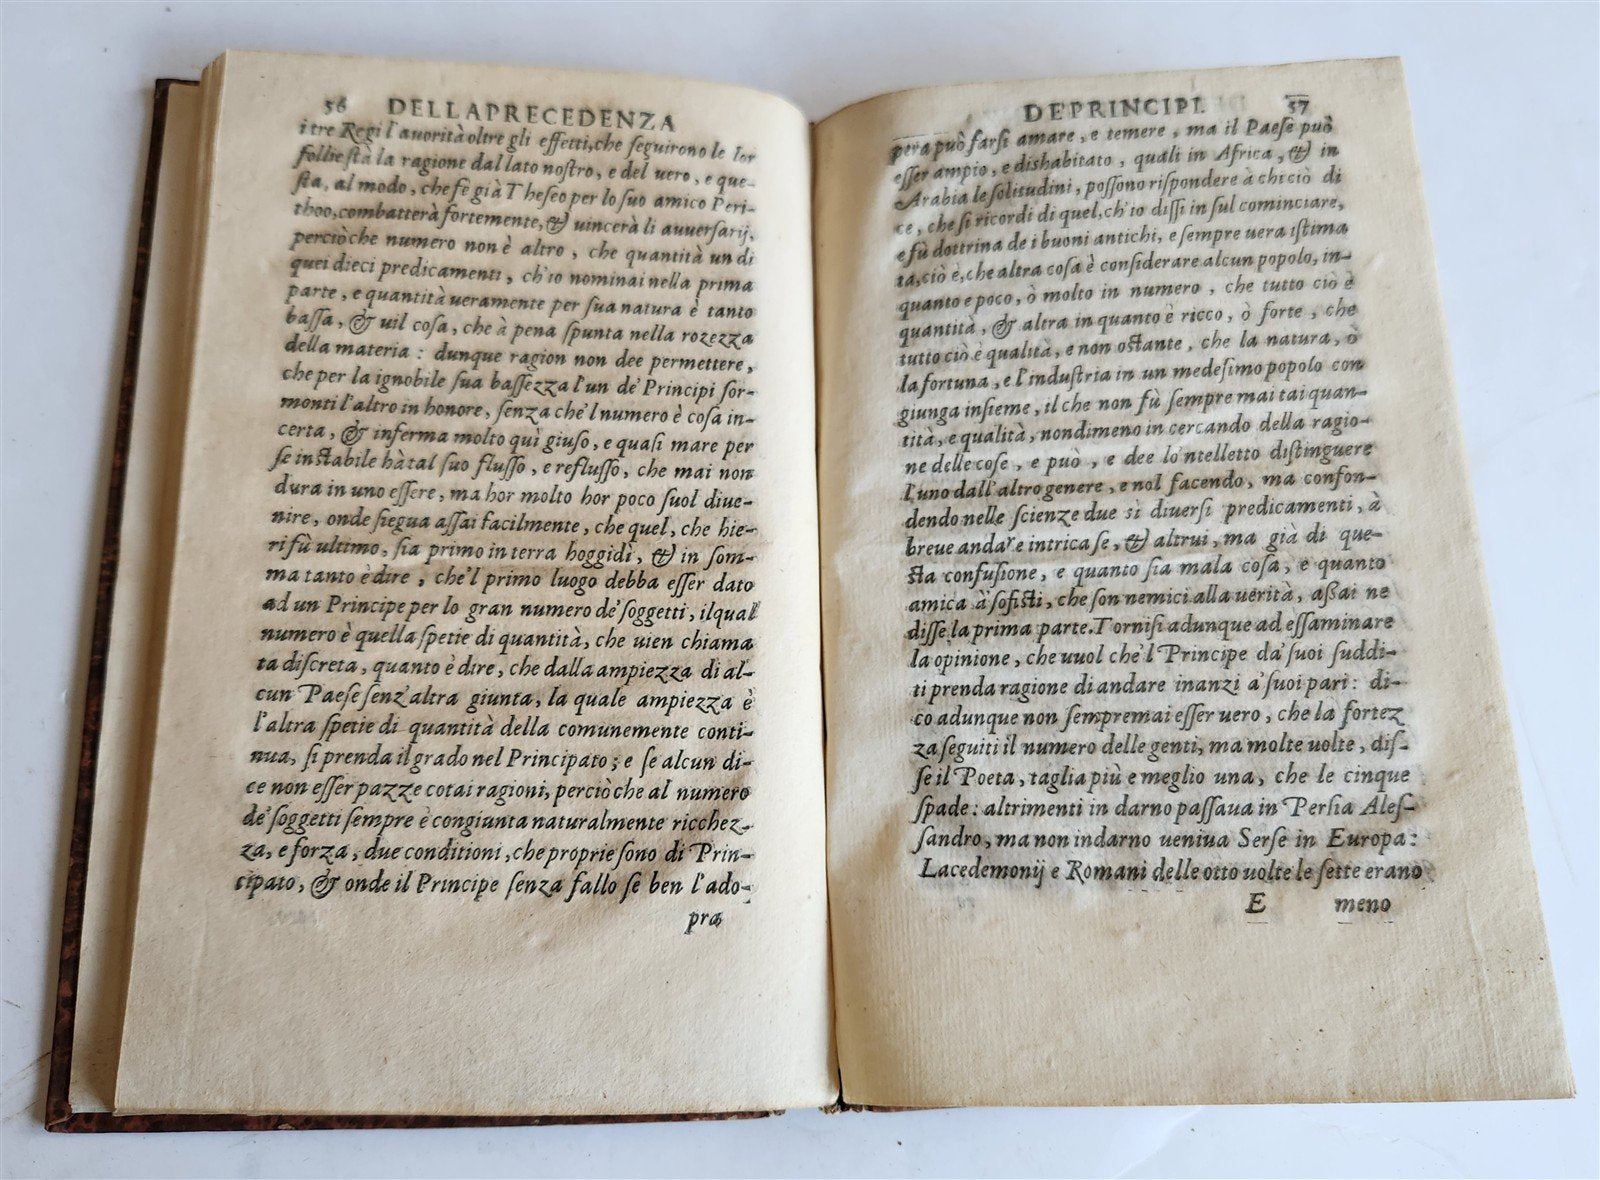 56 DELLA PRECEDENZA
i tre Regi l'auorità oltre gli effetti, che seguirono le lor
follie stà la ragione dal lato nostro, e del uero, e que-
sta, al modo, che fè già Theseo per lo suo amico Peri-
thoo, combatterà fortemente, & uincerà li auuersarij,
perciò che numero non è altro, che quantità un di
quei dieci predicamenti, ch'io nominai nella prima
parte, e quantità ueramente per sua natura è tanto
bassa, & uil cosa, che à pena spunta nella rozezza
della materia: dunque ragion non dee permettere,
che per la ignobile sua bassezza l'un de' Principi sor-
monti l'altro in honore, senza che'l numero è cosa in-
certa, & inferma molto quì giuso, e quasi mare per
se instabile hà tal suo flusso, e reflusso, che mai non
dura in uno essere, ma hor molto hor poco suol diue-
nire, onde siegua assai facilmente, che quel, che hie-
ri fù ultimo, sia primo in terra hoggidì, & in som-
ma tanto è dire, che'l primo luogo debba esser dato
ad un Principe per lo gran numero de' soggetti, il qual
numero è quella spetie di quantità, che uien chiama
ta discreta, quanto è dire, che dalla ampiezza di al-
cun Paese senz'altra giunta, la quale ampiezza è
l'altra spetie di quantità della comunemente conti-
nua, si prenda il grado nel Principato; e se alcun di-
ce non esser pazze cotai ragioni, perciò che al numero
de' soggetti sempre è congiunta naturalmente ricchez-
za, e forza, due conditioni, che proprie sono di Prin-
cipato, & onde il Principe senza fallo se ben l'ado-
pra
DE PRINCIPI. 57
pera può farsi amare, e temere, ma il Paese può
esser ampio, e dishabitato, quali in Africa, & in
Arabia le solitudini, possono rispondere à chi ciò di
ce, che si ricordi di quel, ch'io dissi in sul cominciare,
e fù dottrina de i buoni antichi, e sempre uera istima
ta, ciò è, che altra cosa è considerare alcun popolo, in-
quanto e poco, ò molto in numero, che tutto ciò è
quantità, & altra in quanto è ricco, ò forte, che
tutto ciò è qualità, e non ostante, che la natura, ò
la fortuna, e l'industria in un medesimo popolo con
giunga insieme, il che non fù sempre mai tai quan-
tità, e qualità, nondimeno in cercando della ragio-
ne delle cose, e può, e dee lo'ntelletto distinguere
l'uno dall'altro genere, e nol facendo, ma confon-
dendo nelle scienze due sì diuersi predicamenti, à
breue andare intrica se, & altrui, ma già di que-
sta confusione, e quanto sia mala cosa, e quanto
amica a' sofisti, che son nemici alla uerità, assai ne
disse la prima parte. Tornisi adunque ad essaminare
la opinione, che uuol che'l Principe da' suoi suddi-
ti prenda ragione di andare inanzi a' suoi pari: di-
co adunque non sempremai esser uero, che la fortez
za seguiti il numero delle genti, ma molte uolte, dis-
se il Poeta, taglia più e meglio una, che le cinque
spade: altrimenti in darno passaua in Persia Ales-
sandro, ma non indarno ueniua Serse in Europa:
Lacedemonij e Romani delle otto uolte le sette erano
E meno